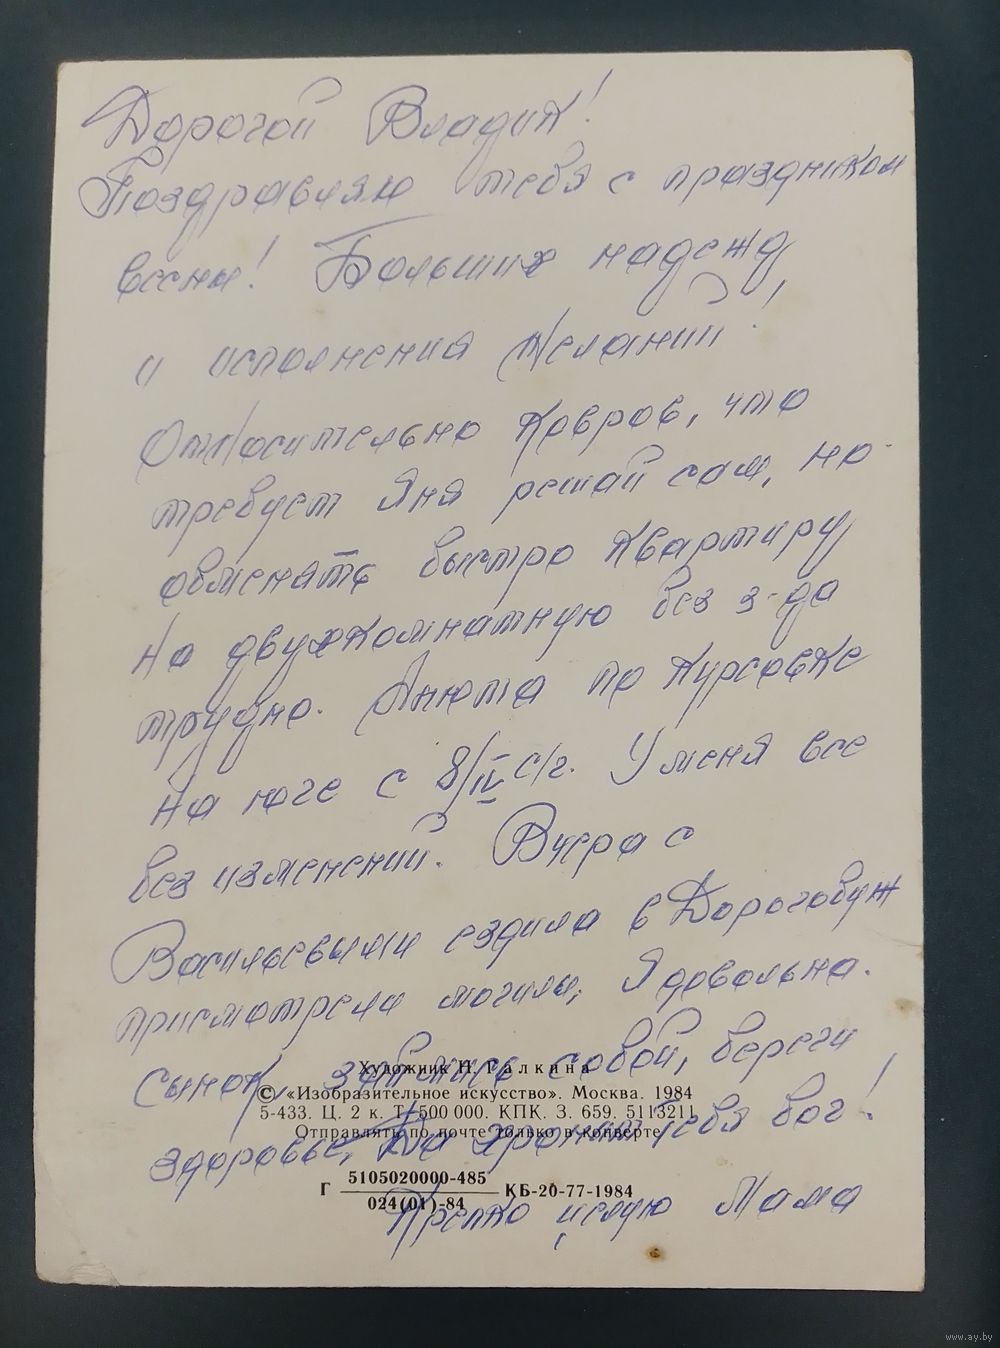 Дорогой Владик!
Поздравляю тебя с праздником
весны! Больших надежд,
и исполнения желаний!
Относительно ковров, что
требует Яня решай сам, но
обменять быстро квартиру
на двухкомнатную без з-да
трудно. Анюта по курсовке
на юге с 8/IV с/г. У меня все
без изменений. Вчера с
Васильевыми ездила в Дорогобуж
присмотрели могилы, Я довольна.
Сынок, займись собой, береги
Художник Н. Галкина
© «Изобразительное искусство». Москва. 1984
5-433. Ц. 2 к. Т. 500 000. КПК. З. 659. 5113211
Отправлять по почте только в конверте
здоровье, Да хранит тебя бог!
Г 5105020000-485 КБ-20-77-1984
024(01)-84
Крепко целую Мама
www.ay.by